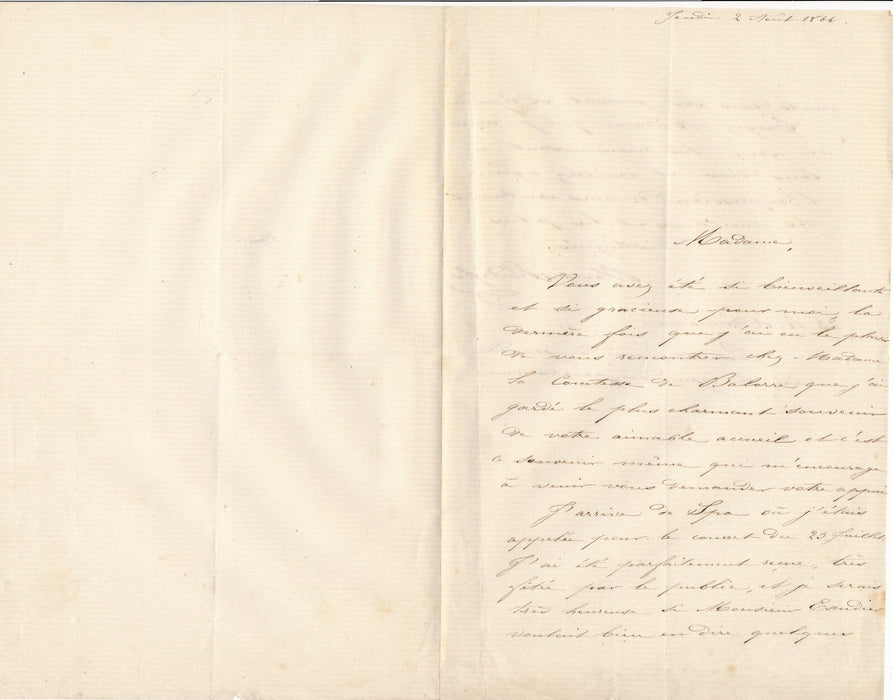 Jeudi 2 Août 1866.
Madame,
Vous avez été si bienveillante
et si gracieuse pour moi, la
dernière fois que j'ai eu le plaisir
de vous rencontrer chez Madame
la Comtesse de que j'ai
gardé le plus charmant souvenir
de votre aimable accueil et c'est
ce souvenir même qui m'encourage
à venir vous demander votre appui
J'arrive de Spa où j'étais
appelée pour le concert du 23 Juillet.
J'ai été parfaitement reçue, très
fêtée par le public, et je serais
très heureuse si Monsieur Escudier
voulait bien en dire quelques